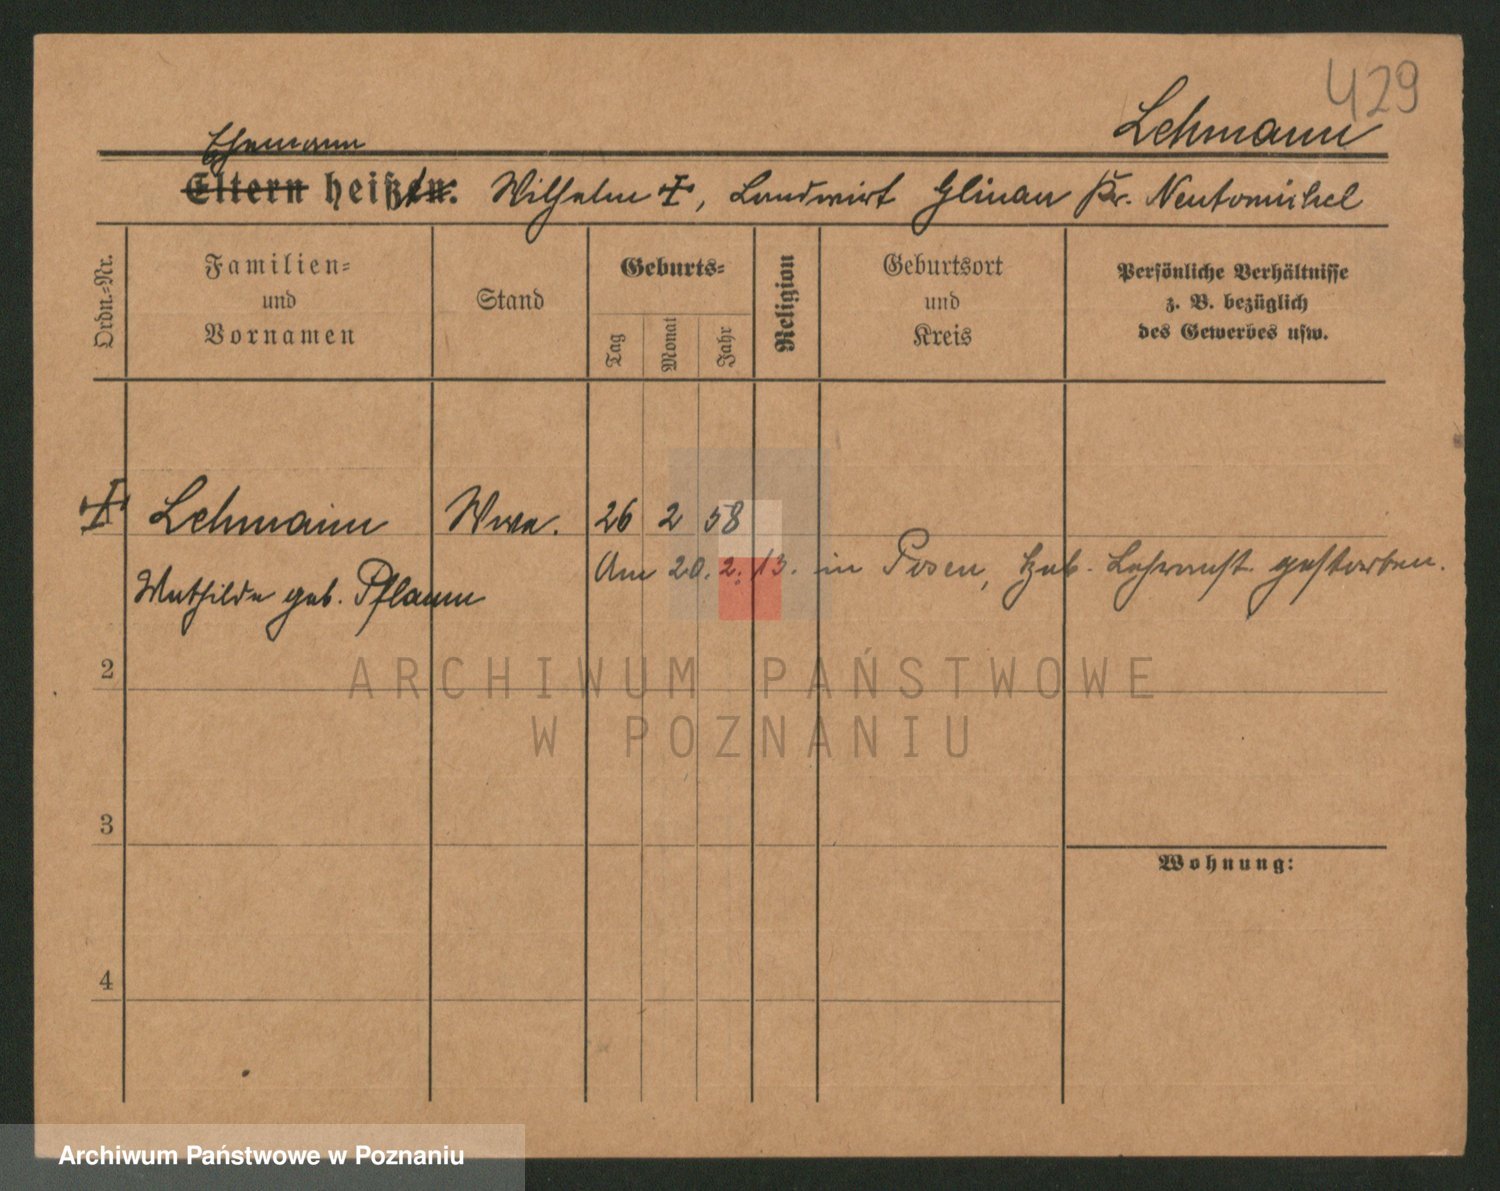 429
Lehmann
Ehemann
Eltern heißt: Wilhelm ✝, Landwirt Glinau Kr. Neutomischel
Ordn.-Nr.
Familien-
und
Vornamen
Stand
Geburts-
Tag
Monat
Jahr
Religion
Geburtsort
und
Kreis
Persönliche Verhältnisse
z. B. bezüglich
des Gewerbes usw.
✝ Lehmann Wwe. 26 2 58
Am 20. 2. 13. in Posen, Heb. Lehranst. gestorben.
Mathilde geb. Pflaum
2
ARCHIWUM PAŃSTWOWE
W POZNANIU
3
Wohnung:
4
Archiwum Państwowe w Poznaniu